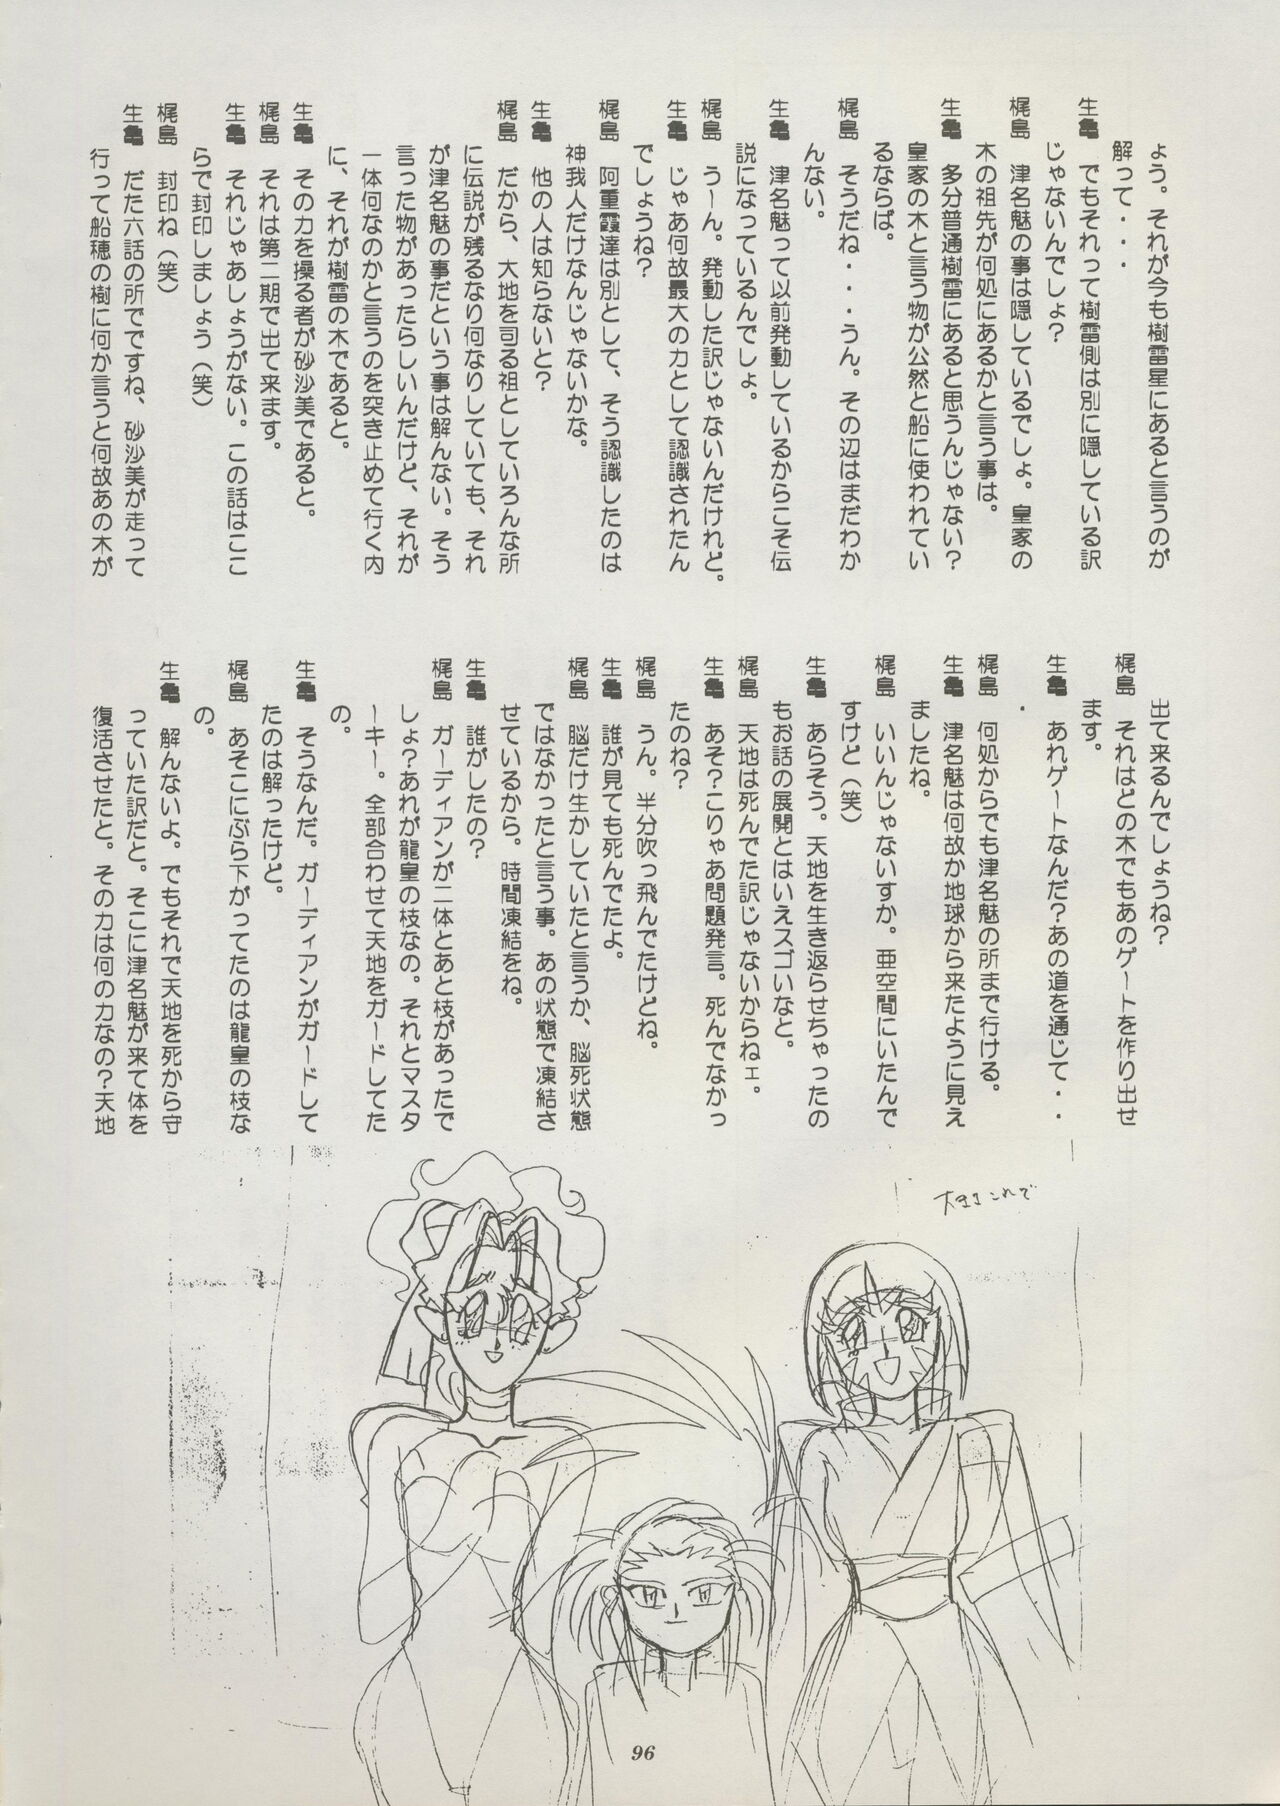 ょう。それが今も樹雷星にあると言うのが
解って・・・
生亀　でもそれって樹雷側は別に隠している訳
じゃないんでしょ？
梶島　津名魅の事は隠しているでしょ。皇家の
木の祖先が何処にあるかと言う事は。
生亀　多分普通樹雷にあると思うんじゃない？
皇家の木と言う物が公然と船に使われてい
るならば。
梶島　そうだね・・・うん。その辺はまだわか
んない。
生亀　津名魅って以前発動しているからこそ伝
説になっているんでしょ。
梶島　うーん。発動した訳じゃないんだけれど。
生亀　じゃあ何故最大の力として認識されたん
でしょうね？
梶島　阿重霞達は別として、そう認識したのは
神我人だけなんじゃないかな。
生亀　他の人は知らないと？
梶島　だから、大地を司る祖としていろんな所
に伝説が残るなり何なりしていても、それ
が津名魅の事だという事は解んない。そう
言った物があったらしいんだけど、それが
一体何なのかと言うのを突き止めて行く内
に、それが樹雷の木であると。
生亀　その力を操る者が砂沙美であると。
梶島　それは第二期で出て来ます。
生亀　それじゃあしょうがない。この話はここ
らで封印しましょう（笑）
梶島　封印ね（笑）
生亀　だた六話の所でですね、砂沙美が走って
行って船穂の樹に何か言うと何故あの木が
出て来るんでしょうね？
梶島　それはどの木でもあのゲートを作り出せ
ます。
生亀　あれゲートなんだ？あの道を通じて・・
・
梶島　何処からでも津名魅の所まで行ける。
生亀　津名魅は何故か地球から来たように見え
ましたね。
梶島　いいんじゃないすか。亜空間にいたんで
すけど（笑）
生亀　あらそう。天地を生き返らせちゃったの
もお話の展開とはいえスゴいなと。
梶島　天地は死んでた訳じゃないからねェ。
生亀　あそ？こりゃあ問題発言。死んでなかっ
たのね？
梶島　うん。半分吹っ飛んでたけどね。
生亀　誰が見ても死んでたよ。
梶島　脳だけ生かしていたと言うか、脳死状態
ではなかったと言う事。あの状態で凍結さ
せているから。時間凍結をね。
生亀　誰がしたの？
梶島　ガーディアンが二体とあと枝があったで
しょ？あれが龍皇の枝なの。それとマスタ
ーキー。全部合わせて天地をガードしてた
の。
生亀　そうなんだ。ガーディアンがガードして
たのは解ったけど。
梶島　あそこにぶら下がってたのは龍皇の枝な
の。
生亀　解んないよ。でもそれで天地を死から守
っていた訳だと。そこに津名魅が来て体を
復活させたと。その力は何の力なの？天地
これで
96